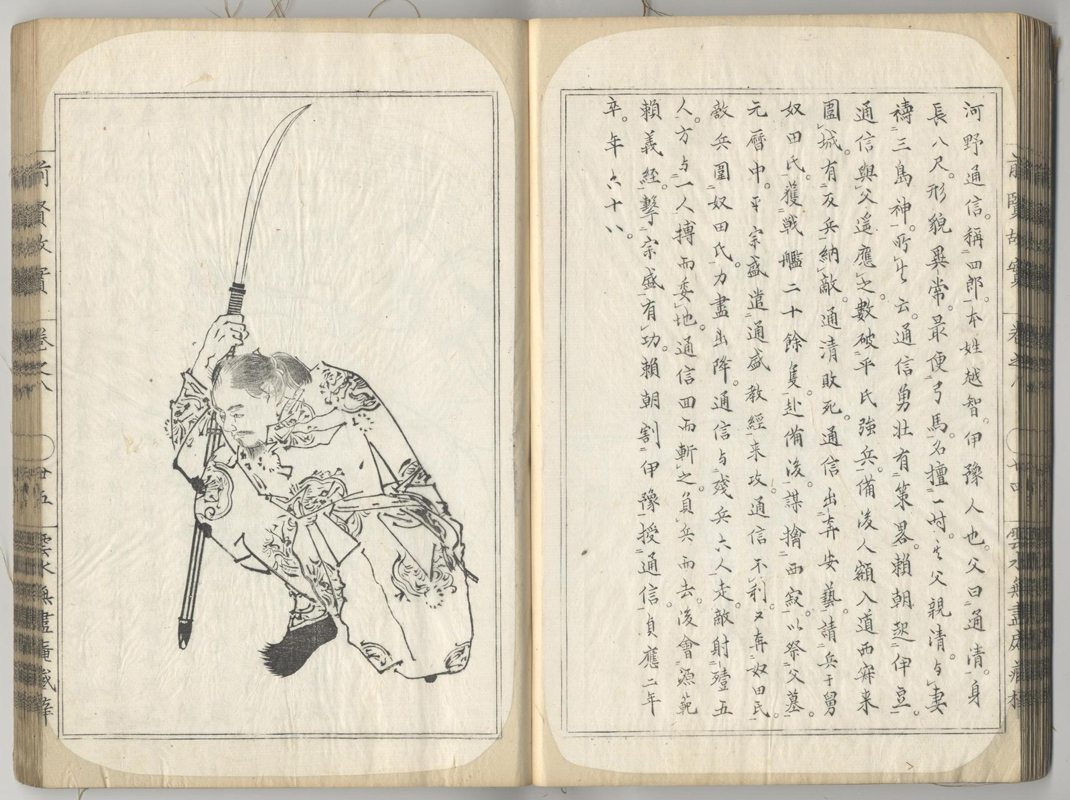 河野通信。稱四郎。本姓越智。伊豫人也。父曰通清。身
長八尺。形貌異常。最便弓馬。名擅一時。其父親清与妻
禱三島神。所生云。通信勇壯有策畧。賴朝起伊豆。
通信與父遥應之。數破平氏強兵。備後人額入道西寂来
圍城。有反兵納敵。通清敗死。通信出奔安藝。請兵于舅
奴田氏。獲戦艦二十餘隻。赴備後。謀擒西寂。以祭父墓。
元曆中。平宗盛遣通盛教經来攻。通信不利。又奔奴田氏。
敵兵圍奴田氏。力盡出降。通信与殘兵六人走。敵射殪五
人。方与一人搏而委地。通信回而斬之。負兵而去。後會源範
賴義經。擊宗盛有功。賴朝割伊豫授通信。貞應二年
卒。年六十八。
前賢故實 卷之八 廿四 雲水無盡庵藏梓
前賢故實 卷之八 廿五 雲水無盡庵藏梓